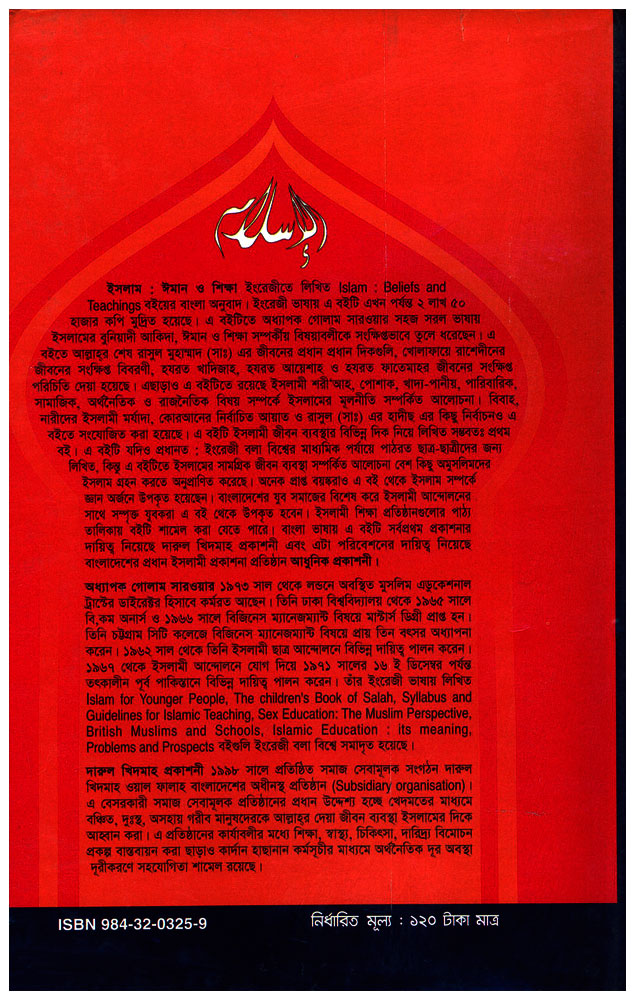 الإسلام
ইসলাম : ঈমান ও শিক্ষা ইংরেজীতে লিখিত Islam : Beliefs and
Teachings বইয়ের বাংলা অনুবাদ। ইংরেজী ভাষায় এ বইটি এখন পর্যন্ত ২ লাখ ৫০
হাজার কপি মুদ্রিত হয়েছে। এ বইটিতে অধ্যাপক গোলাম সারওয়ার সহজ সরল ভাষায়
ইসলামের বুনিয়াদী আকিদা, ঈমান ও শিক্ষা সম্পর্কীয় বিষয়াবলীকে সংক্ষিপ্তভাবে তুলে ধরেছেন। এ
বইতে আল্লাহ্‌র শেষ রাসুল মুহাম্মাদ (সাঃ) এর জীবনের প্রধান প্রধান দিকগুলি, খোলাফায়ে রাশেদীনের
জীবনের সংক্ষিপ্ত বিবরণী, হযরত খাদিজাহ্, হযরত আয়েশাহ্ ও হযরত ফাতেমাহর জীবনের সংক্ষিপ্ত
পরিচিতি দেয়া হয়েছে। এছাড়াও এ বইটিতে রয়েছে ইসলামী শরী'আহ্, পোশাক, খাদ্য-পানীয়, পারিবারিক,
সামাজিক, অর্থনৈতিক ও রাজনৈতিক বিষয় সম্পর্কে ইসলামের মূলনীতি সম্পর্কিত আলোচনা। বিবাহ,
নারীদের ইসলামী মর্যাদা, কোরআনের নির্বাচিত আয়াত ও রাসুল (সাঃ) এর হাদীছ এর কিছু নির্বাচনও এ
বইতে সংযোজিত করা হয়েছে। এ বইটি ইসলামী জীবন ব্যবস্থার বিভিন্ন দিক নিয়ে লিখিত সম্ভবতঃ প্রথম
বই। এ বইটি যদিও প্রধানত : ইংরেজী বলা বিশ্বের মাধ্যমিক পর্যায়ে পাঠরত ছাত্র-ছাত্রীদের জন্য
লিখিত, কিন্তু এ বইটিতে ইসলামের সামগ্রিক জীবন ব্যবস্থা সম্পর্কিত আলোচনা বেশ কিছু অমুসলিমদের
ইসলাম গ্রহন করতে অনুপ্রাণিত করেছে। অনেক প্রাপ্ত বয়স্করাও এ বই থেকে ইসলাম সম্পর্কে
জ্ঞান অর্জনে উপকৃত হয়েছেন। বাংলাদেশের যুব সমাজের বিশেষ করে ইসলামী আন্দোলনের
সাথে সম্পৃক্ত যুবকরা এ বই থেকে উপকৃত হবেন। ইসলামী শিক্ষা প্রতিষ্ঠানগুলোর পাঠ্য
তালিকায় বইটি শামেল করা যেতে পারে। বাংলা ভাষায় এ বইটি সর্বপ্রথম প্রকাশনার
দায়িত্ব নিয়েছে দারুল খিদমাহ প্রকাশনী এবং এটা পরিবেশনের দায়িত্ব নিয়েছে
বাংলাদেশের প্রধান ইসলামী প্রকাশনা প্রতিষ্ঠান আধুনিক প্রকাশনী।
অধ্যাপক গোলাম সারওয়ার ১৯৭৩ সাল থেকে লন্ডনে অবস্থিত মুসলিম এডুকেশনাল
ট্রাস্টের ডাইরেক্টর হিসাবে কর্মরত আছেন। তিনি ঢাকা বিশ্ববিদ্যালয় থেকে ১৯৬৫ সালে
বি,কম অনার্স ও ১৯৬৬ সালে বিজিনেস ম্যানেজম্যান্ট বিষয়ে মাস্টার্স ডিগ্রী প্রাপ্ত হন।
তিনি চট্টগ্রাম সিটি কলেজে বিজিনেস ম্যানেজম্যান্ট বিষয়ে প্রায় তিন বৎসর অধ্যাপনা
করেন। ১৯৬২ সাল থেকে তিনি ইসলামী ছাত্র আন্দোলনে বিভিন্ন দায়িত্ব পালন করেন।
১৯৬৭ থেকে ইসলামী আন্দোলনে যোগ দিয়ে ১৯৭১ সালের ১৬ ই ডিসেম্বর পর্যন্ত
তৎকালীন পূর্ব পাকিস্তানে বিভিন্ন দায়িত্ব পালন করেন। তাঁর ইংরেজী ভাষায় লিখিত
Islam for Younger People, The children's Book of Salah, Syllabus and
Guidelines for Islamic Teaching, Sex Education: The Muslim Perspective,
British Muslims and Schools, Islamic Education : its meaning,
Problems and Prospects বইগুলি ইংরেজী বলা বিশ্বে সমাদৃত হয়েছে।
দারুল খিদমাহ প্রকাশনী ১৯৯৮ সালে প্রতিষ্ঠিত সমাজ সেবামূলক সংগঠন দারুল
খিদমাহ ওয়াল ফালাহ বাংলাদেশের অধীনস্থ প্রতিষ্ঠান (Subsidiary organisation)।
এ বেসরকারী সমাজ সেবামূলক প্রতিষ্ঠানের প্রধান উদ্দেশ্য হচ্ছে খেদমতের মাধ্যমে
বঞ্চিত, দুঃস্থ, অসহায় গরীব মানুষদেরকে আল্লাহ্‌র দেয়া জীবন ব্যবস্থা ইসলামের দিকে
আহ্বান করা। এ প্রতিষ্ঠানের কার্যাবলীর মধ্যে শিক্ষা, স্বাস্থ্য, চিকিৎসা, দারিদ্র্য বিমোচন
প্রকল্প বাস্তবায়ন করা ছাড়াও কার্দান হাছানান কর্মসূচীর মাধ্যমে অর্থনৈতিক দূর অবস্থা
দূরীকরণে সহযোগিতা শামেল রয়েছে।
ISBN 984-32-0325-9
নির্ধারিত মূল্য : ১২০ টাকা মাত্র